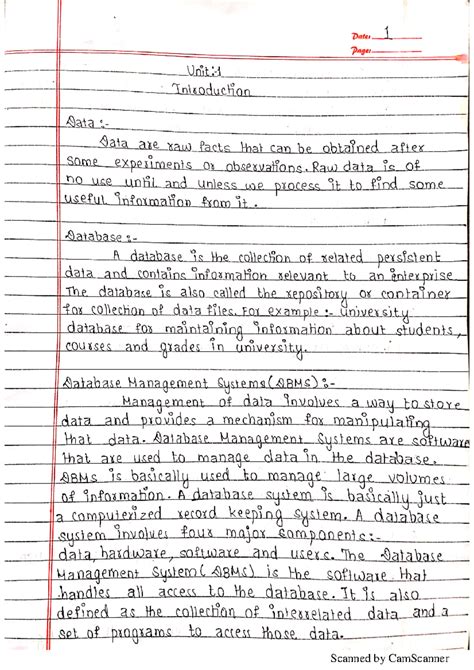 Date: 1
Page:
Unit:1
Introduction
Data :-
Data are raw facts that can be obtained after
some experiments or observations. Raw data is of
no use until and unless we process it to find some
useful information from it .
Database :-
A database is the collection of related persistent
data and contains information relevant to an enterprise
The database is also called the repository or container
for collection of data files. For example :- university
database for maintaining information about students,
courses and grades in university.
Database Management Systems(DBMS) :-
Management of data involves a way to store
data and provides a mechanism for manipulating
that data. Database Management Systems are software
that are used to manage data in the database.
DBMS is basically used to manage large volumes
of information. A database system is basically just
a computerized record keeping system. A database
system involves four major components:-
data, hardware, software and users. The Database
Management System( DBMS) is the software that
handles all access to the database. It is also
defined as the collection of interrelated data and a
set of programs to access those data.
Scanned by CamScanner